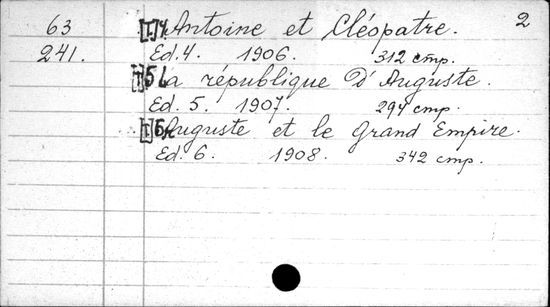 63 [T]4 Antoine et Cléopatre. 2
241. Ed. 4. 1906. 312 стр.
[T]5 La république D'Auguste.
Ed. 5. 1907. 294 стр.
[T]6 Auguste et le Grand Empire.
Ed. 6. 1908. 342 стр.